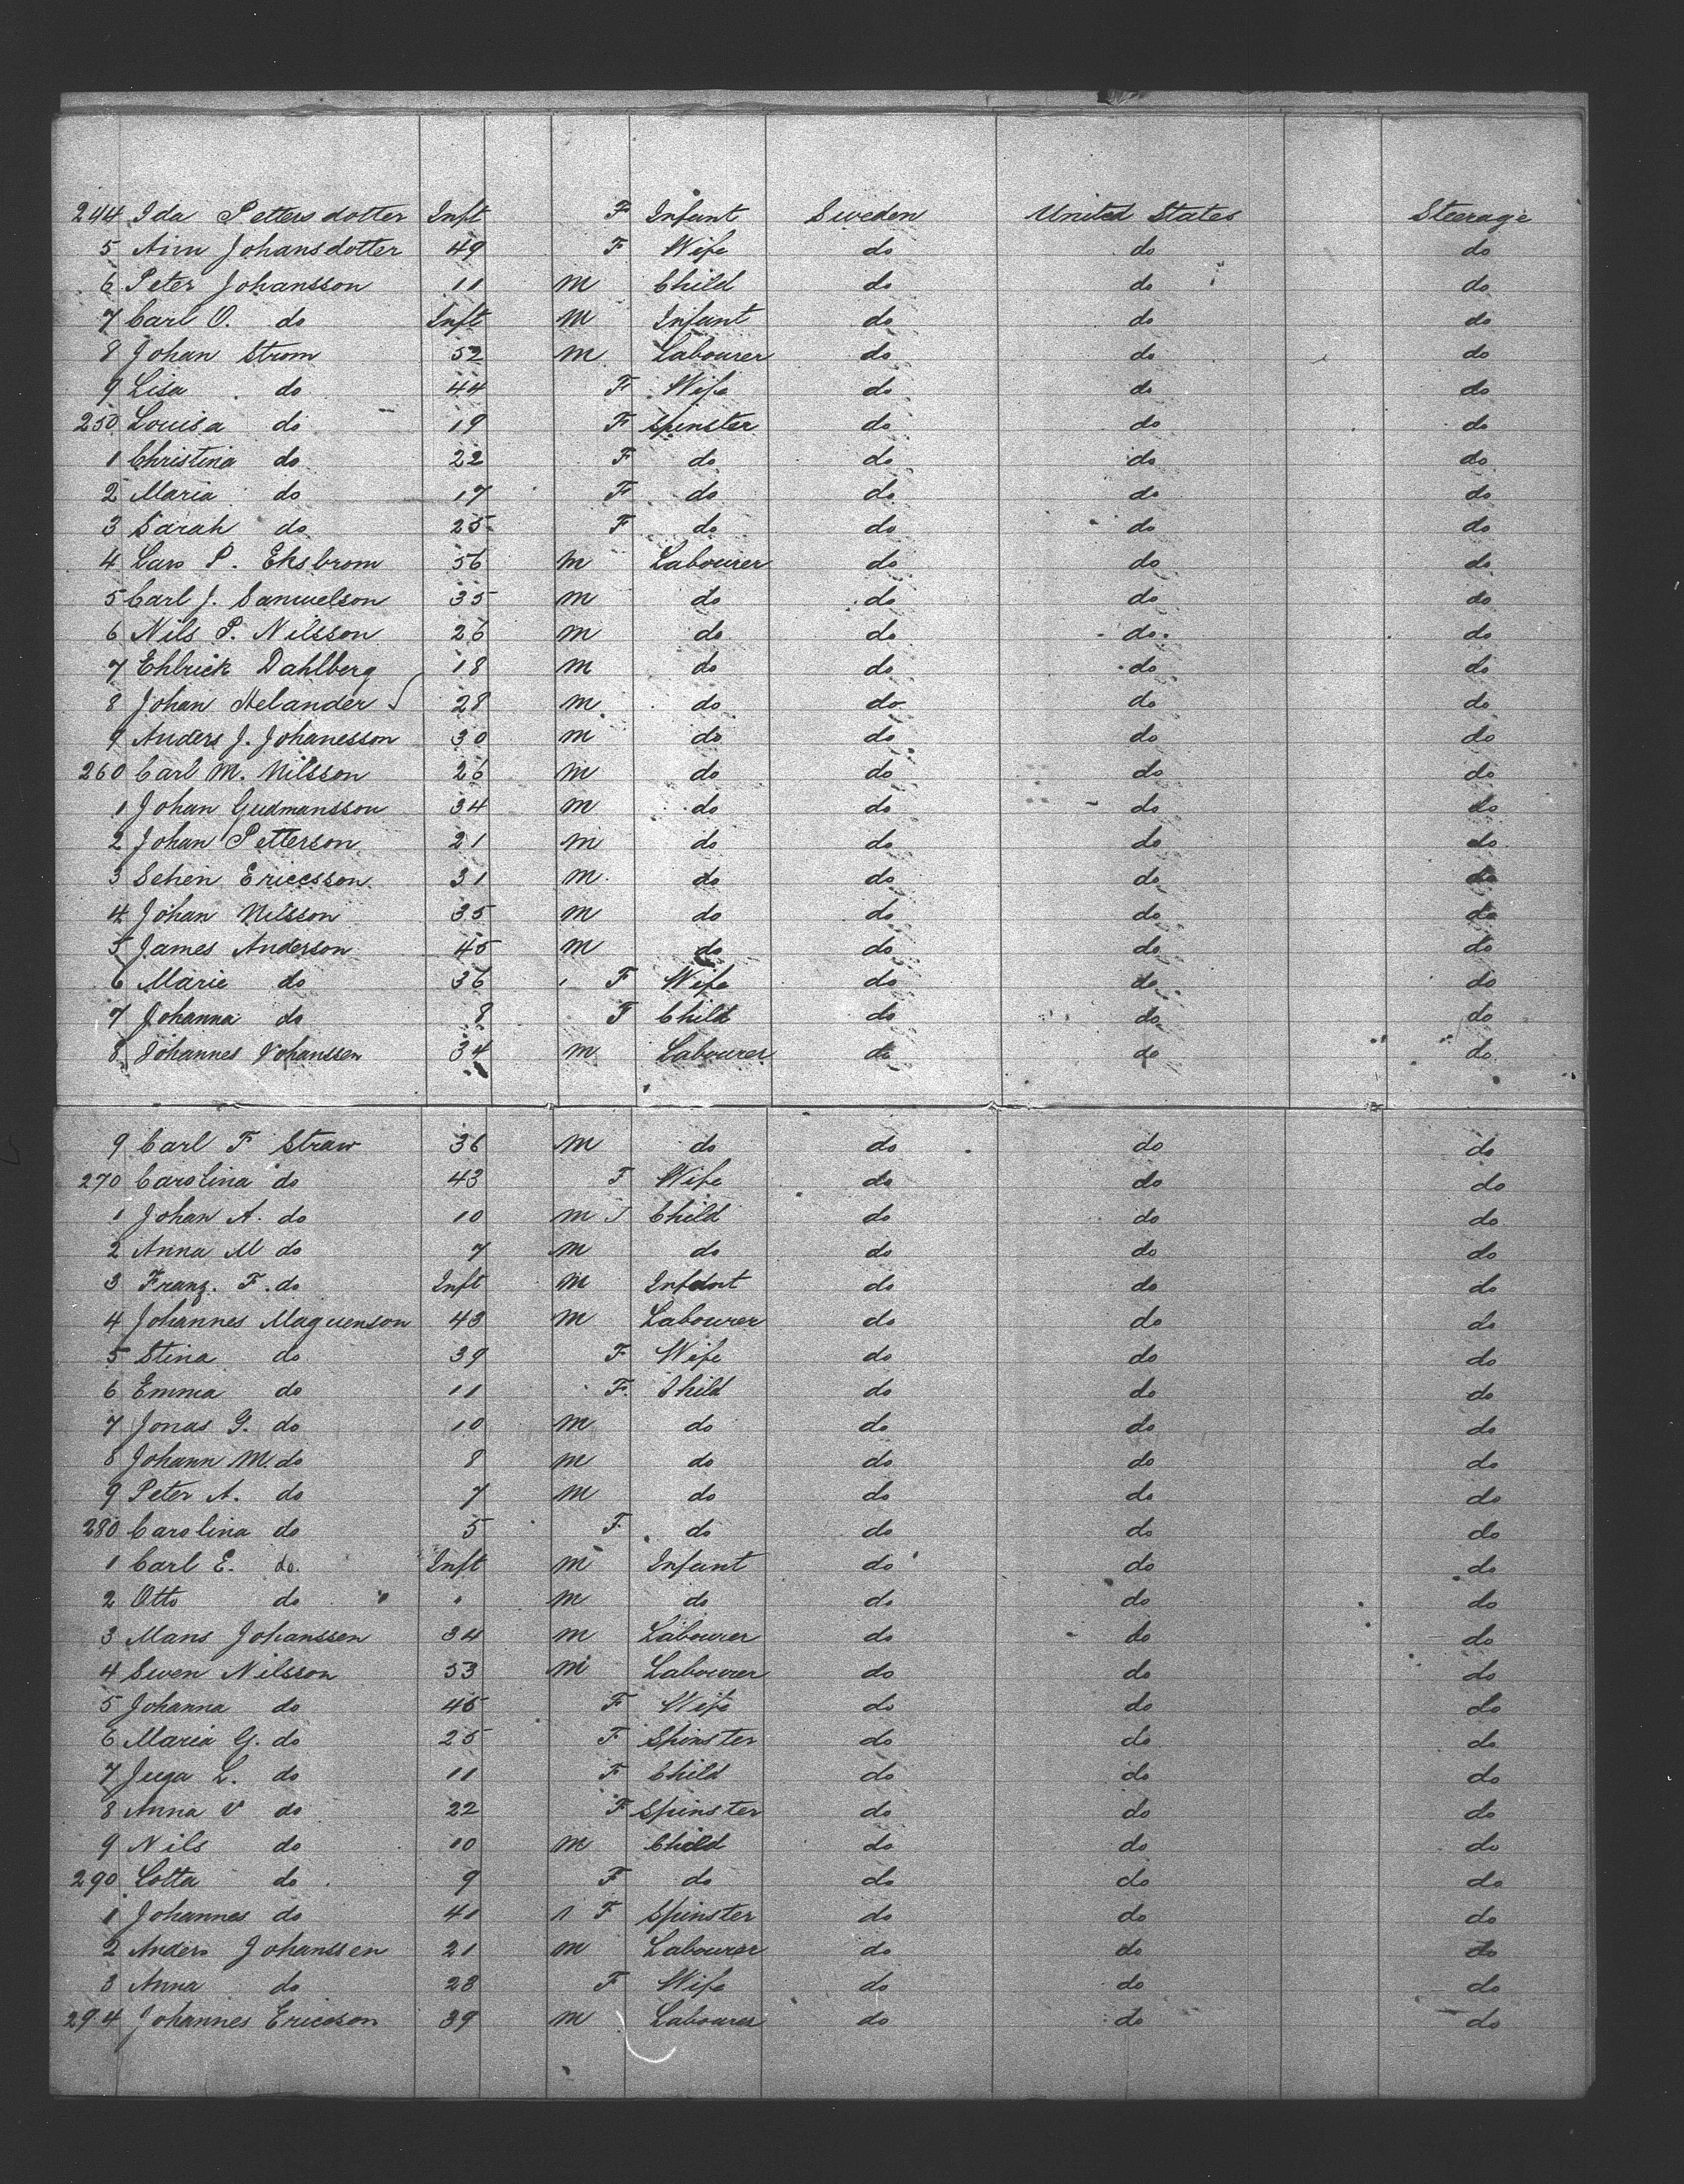 244 Ida Petters dotter Inft F Infant Sweden United States Steerage
5 Ann Johansdotter 49 F Wife do do do
6 Peter Johansson 11 M Child do do do
7 Carl O. do Inft M Infant do do do
8 Johan Strom 52 M Labourer do do do
9 Lisa do 44 F Wife do do do
250 Louisa do 19 F Spinster do do do
1 Christina do 22 F do do do do
2 Maria do 17 F do do do do
3 Sarah do 25 F do do do do
4 Lars P. Eksbrom 56 M Labourer do do do
5 Carl J. Samuelson 35 M do do do do
6 Nils P. Nilsson 26 M do do do do
7 Ehlrick Dahlberg 18 M do do do do
8 Johan Helander 28 M do do do do
9 Anders J. Johanesson 30 M do do do do
260 Carl M. Nilsson 26 M do do do do
1 Johan Gudmansson 34 M do do do do
2 Johan Petterson 21 M do do do do
3 Sehen Ericcsson 31 M do do do do
4 Johan Nilsson 35 M do do do do
5 James Anderson 45 M do do do do
6 Marie do 36 F Wife do do do
7 Johanna do 8 F Child do do do
8 Johannes Johanssen 34 M Labourer do do do
9 Carl F Straw 36 M do do do do
270 Carolina do 43 F Wife do do do
1 Johan A. do 10 M Child do do do
2 Anna M do 7 M do do do do
3 Franz. F. do Inft M Infant do do do
4 Johannes Maguenson 43 M Labourer do do do
5 Stina do 39 F Wife do do do
6 Emma do 11 F. Child do do do
7 Jonas G. do 10 M do do do do
8 Johann M. do 8 M do do do do
9 Peter A. do 7 M do do do do
280 Carolina do 5 F do do do do
1 Carl E. do. Inft M Infant do do do
2 Otto do " M do do do do
3 Mans Johanssen 34 M Labourer do do do
4 Swen Nilsson 53 M Labourer do do do
5 Johanna do 45 F Wife do do do
6 Maria G. do 25 F Spinster do do do
7 Juga L. do 11 F Child do do do
8 Anna V do 22 F Spinster do do do
9 Nils do 10 M Child do do do
290 Lotta do 9 F do do do do
1 Johannes do 41 F Spinster do do do
2 Anders Johanssen 21 M Labourer do do do
3 Anna do 28 F Wife do do do
294 Johannes Ericcson 39 M Labourer do do do